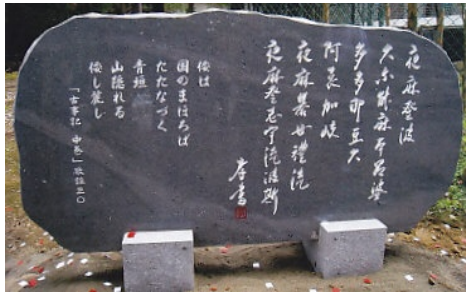 夜麻登波
久尓能麻本呂婆
多多那豆久
阿袁加岐
夜麻碁母禮流
夜麻登志宇流波斯
倭は
国のまほろば
たたなづく
青垣
山隠れる
倭し麗し
「古事記 中巻」歌謡三〇